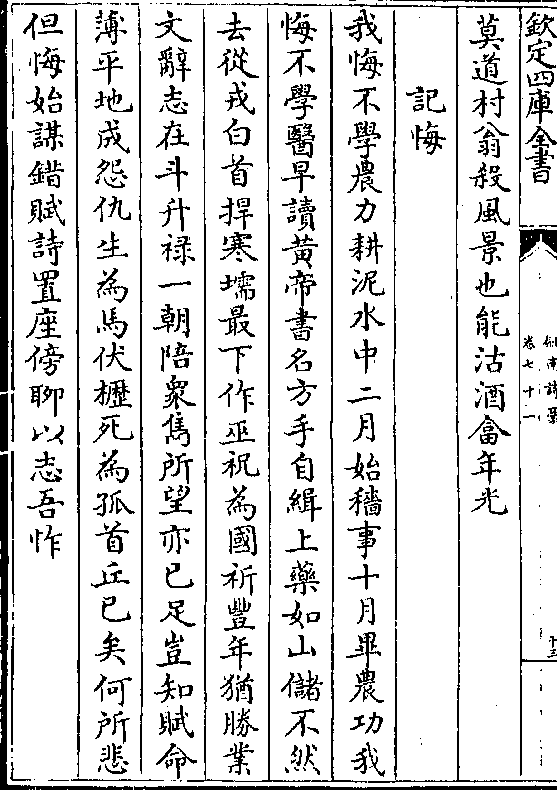 欽定四庫全書
劍南詩稾
卷七十一
十三
莫道村翁殺風景也能沽酒畣年光
記悔
我悔不學農力耕泥水中二月始穡事十月畢農功我
悔不學醫早讀黃帝書名方手自緝上藥如山儲不然
去從戎白首捍寒壖最下作巫祝為國祈豐年猶勝業
文辭志在斗升祿一朝陪衆雋所望亦已足豈知賦命
薄平地成怨仇生為馬伏櫪死為孤首丘已矣何所悲
但悔始謀錯賦詩置座傍聊以志吾怍